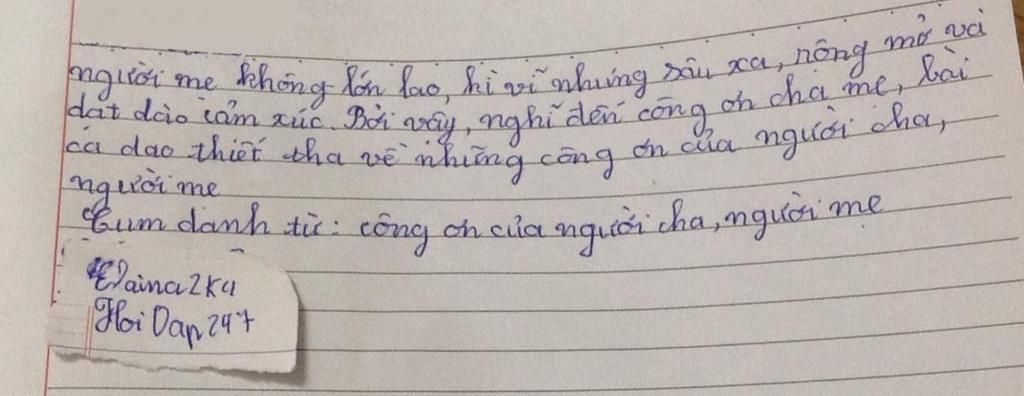 người mẹ không lớn lao, hì vĩ nhưng sâu xa, nồng mở và
dạt dào cảm xúc. Bởi vậy, nghĩ đến công ơn cha mẹ, bài
ca dao thiết tha về những công ơn của người cha,
người mẹ
Cụm danh từ: công ơn của người cha, người mẹ
Elaina2k4
Hoi Dap247